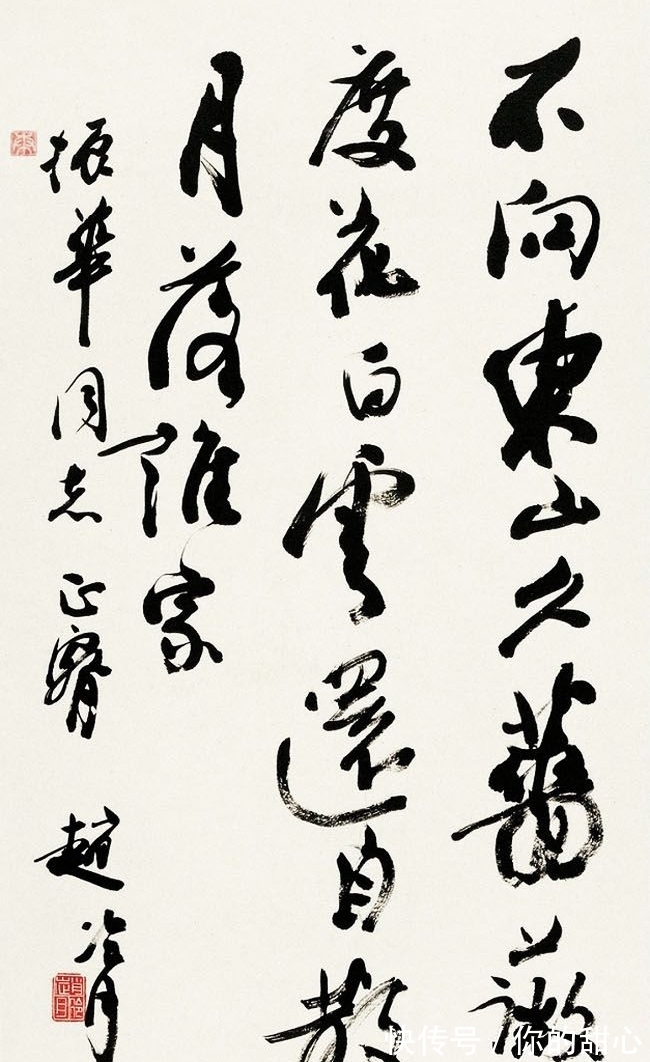 不向東山久薔薇
度花白雲還自散
月落誰家
振華同志正
趙冷月
快传号 / 你的甜心